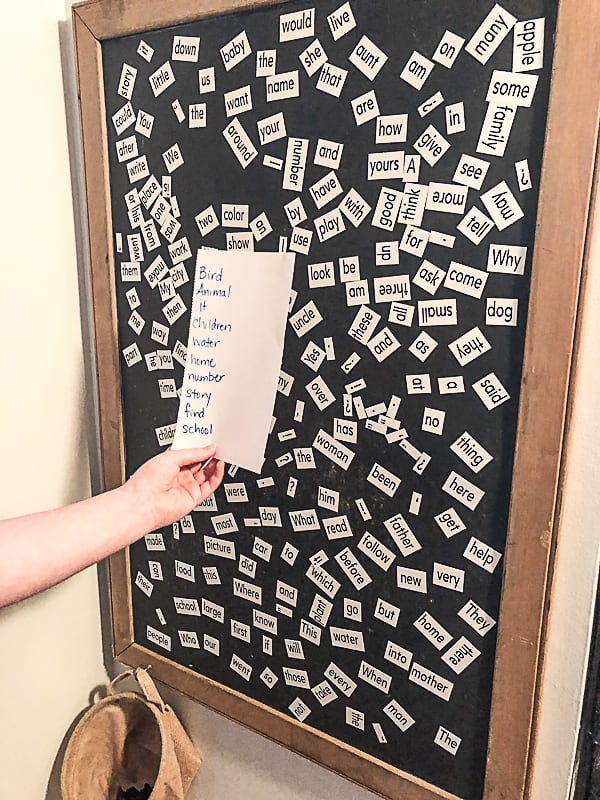 would
live
many
apple
it
down
baby
the
she
aunt
on
story
little
us
that
am
some
want
name
are
in
family
could
You
the
around
your
how
give
after
We
number
and
yours
A
see
write
have
good
think
more
may
place
or
his
one
was
two
color
by
with
tell
went
from
work
show
use
play
for
up
Why
them
make
My
city
look
be
ask
come
to
then
am
three
all
small
dog
me
way
uncle
these
and
as
they
part
he
you
yes
at
a
said
time
my
over
no
has
woman
thing
the
been
here
were
him
get
do
most
day
What
read
father
help
made
picture
car
to
follow
can
food
this
did
which
before
new
very
their
Where
and
plant
go
but
They
school
large
know
home
there
people
Who
our
first
if
will
This
water
into
went
so
those
every
When
mother
not
take
the
man
The
Bird
Animal
it
children
water
home
number
story
find
school